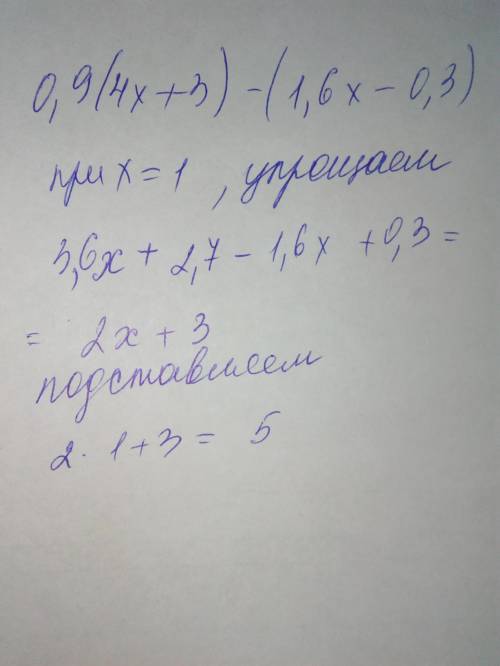 0,9(4x+3)-(1,6x-0,3)
при x=1, упрощаем
3,6x+2,7-1,6x+0,3=
= 2x+3
подставляем
2·1+3= 5